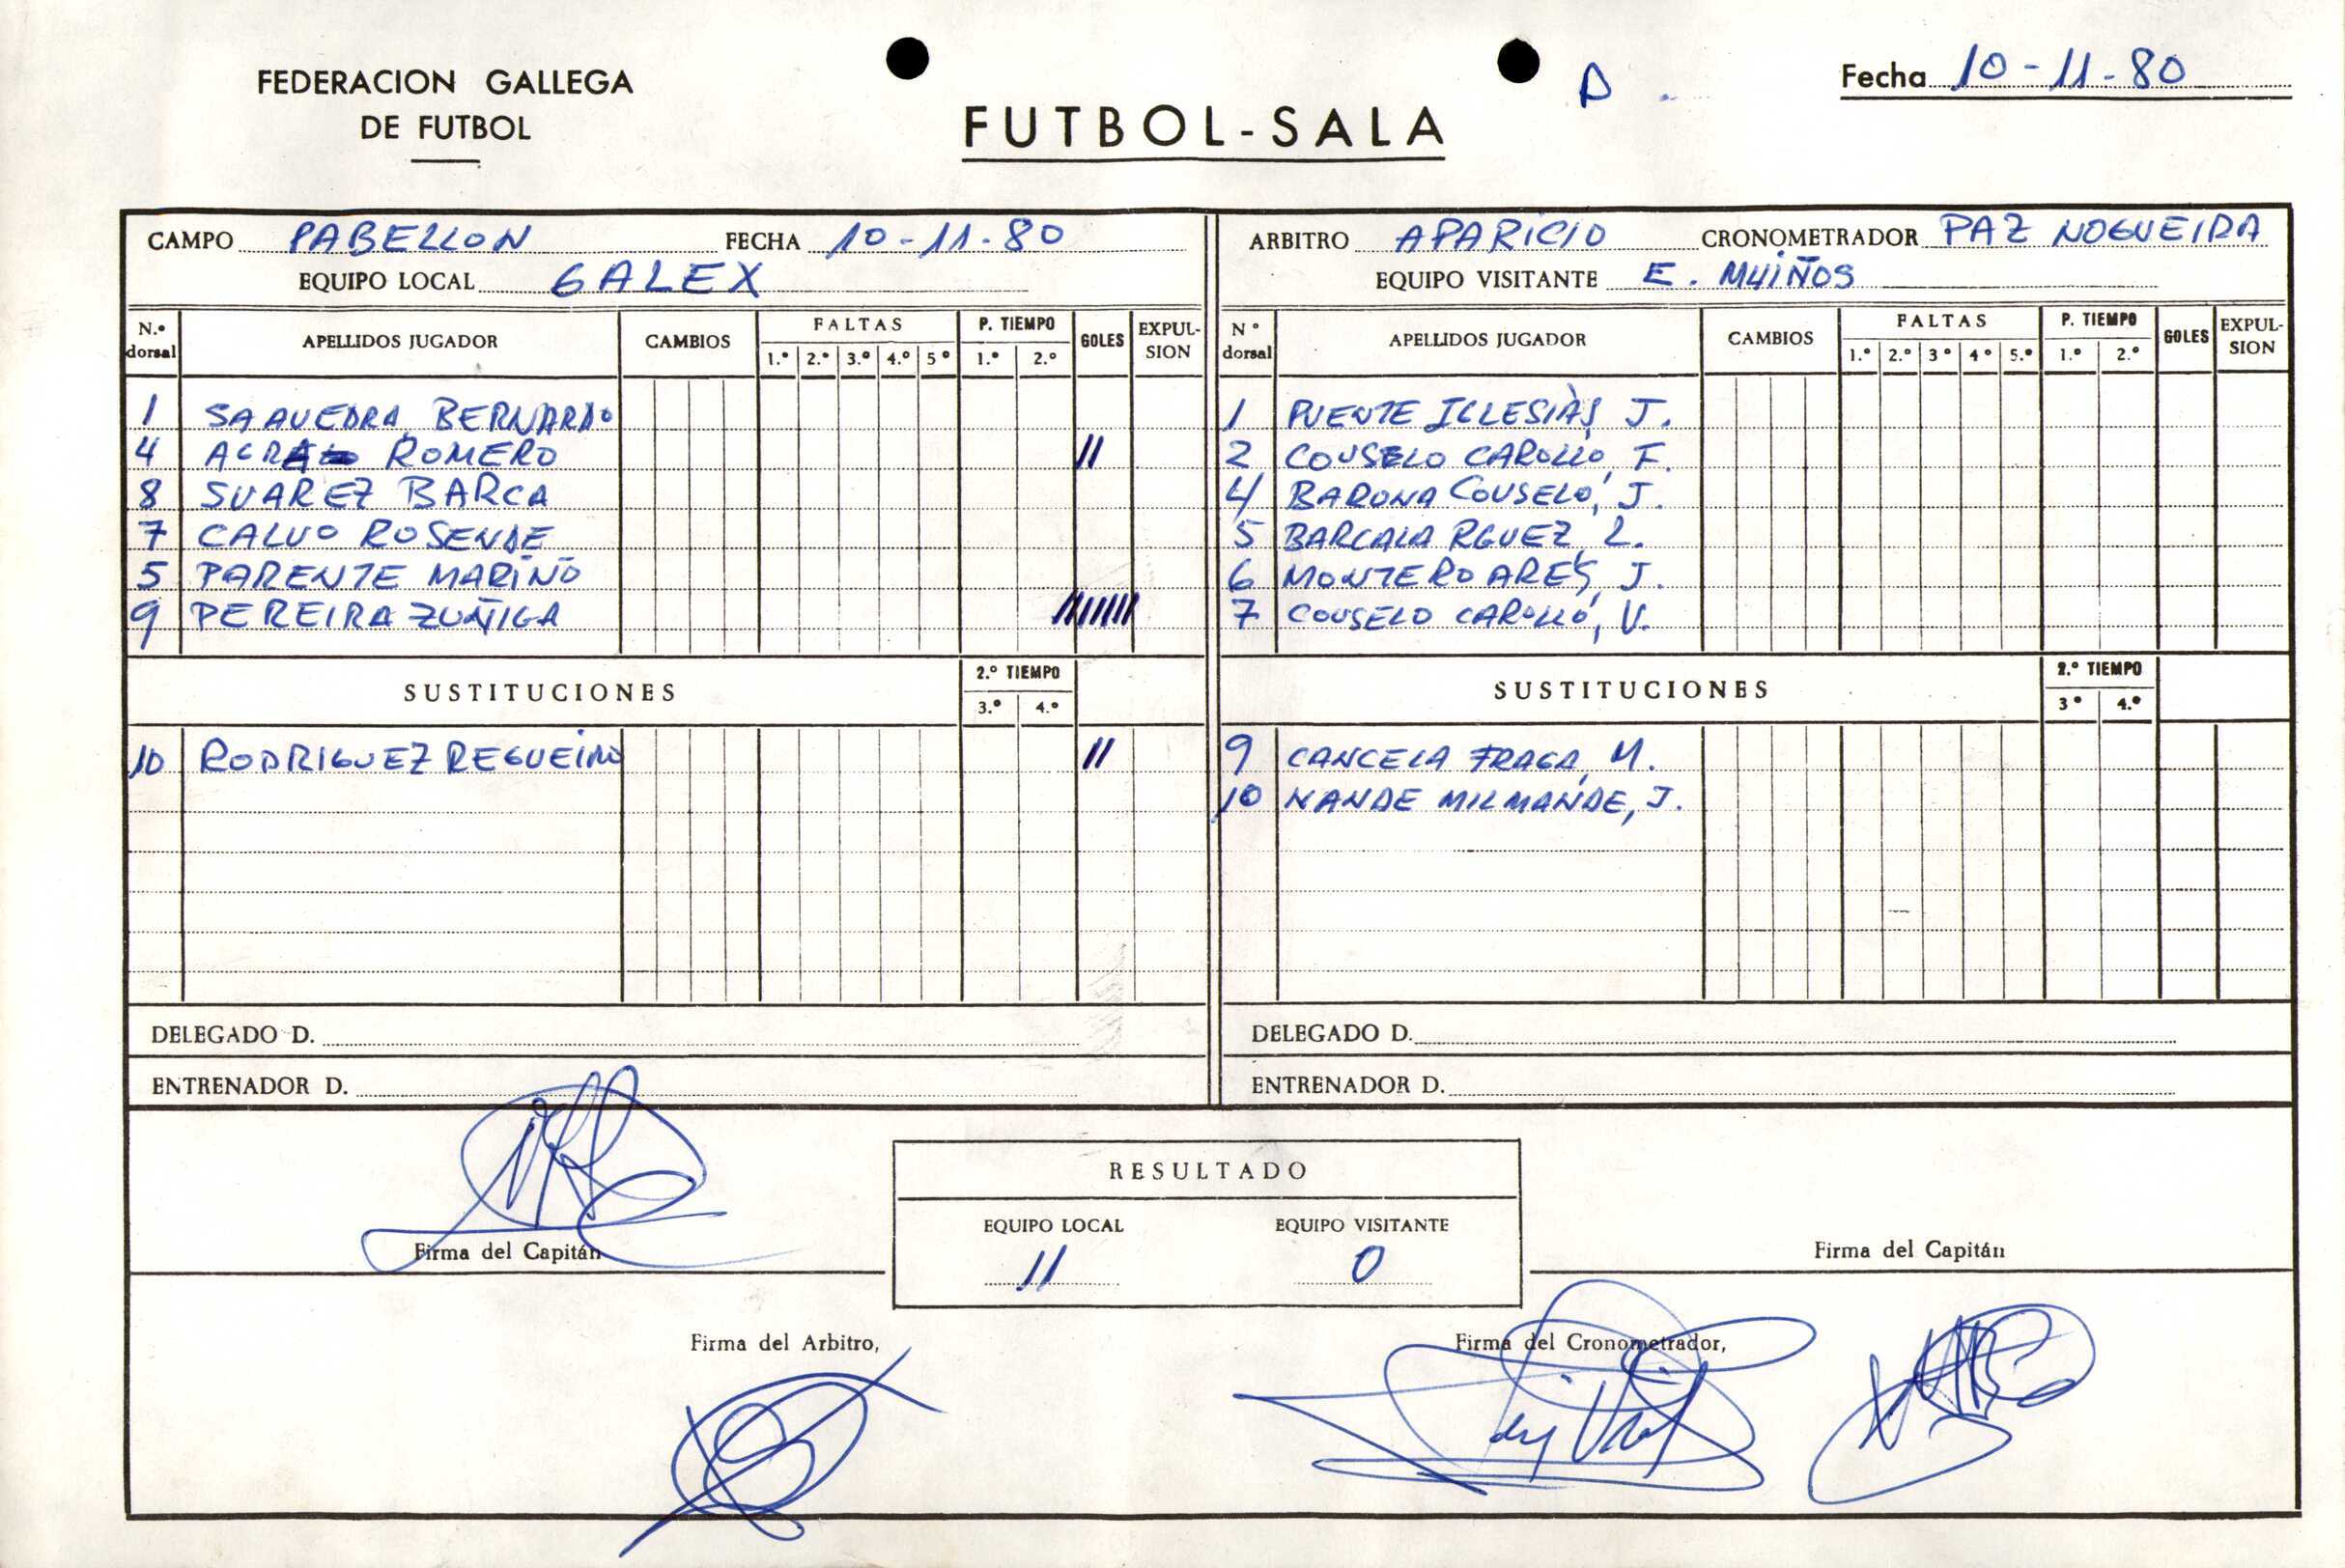 FEDERACION GALLEGA
DE FUTBOL
FUTBOL-SALA
A
Fecha 10-11-80
CAMPO PABELLON FECHA 10-11-80
EQUIPO LOCAL GALEX
N.º dorsal APELLIDOS JUGADOR CAMBIOS FALTAS 1.º 2.º 3.º 4.º 5º P. TIEMPO 1.º 2.º GOLES EXPUL-SION
1 SAAVEDRA BERNARDO
4 ROMERO //
8 SUAREZ BARCA
7 CALVO ROSENDE
5 PARENTE MARIÑO
9 PEREIRA ZUÑIGA ///////
SUSTITUCIONES 2.º TIEMPO 3.º 4.º
10 RODRIGUEZ REGUEIRO //
DELEGADO D.
ENTRENADOR D.
ARBITRO APARICIO CRONOMETRADOR PAZ NOGUEIRA
EQUIPO VISITANTE E. MUIÑOS
Nº dorsal APELLIDOS JUGADOR CAMBIOS FALTAS 1.º 2.º 3º 4º 5.º P. TIEMPO 1.º 2.º GOLES EXPUL-SION
1 PUENTE IGLESIAS, J.
2 COUSELO CAROLLO, F.
4 BARONA COUSELO, J.
5 BARCALA RGUEZ, L.
6 MONTERO ARES, J.
7 COUSELO CAROLLO, V.
SUSTITUCIONES 2.º TIEMPO 3º 4.º
9 CANCELA FRAGA, M.
10 NANDE MILMANDE, J.
DELEGADO D.
ENTRENADOR D.
RESULTADO
EQUIPO LOCAL EQUIPO VISITANTE
11 0
Firma del Capitán
Firma del Capitán
Firma del Arbitro,
Firma del Cronometrador,